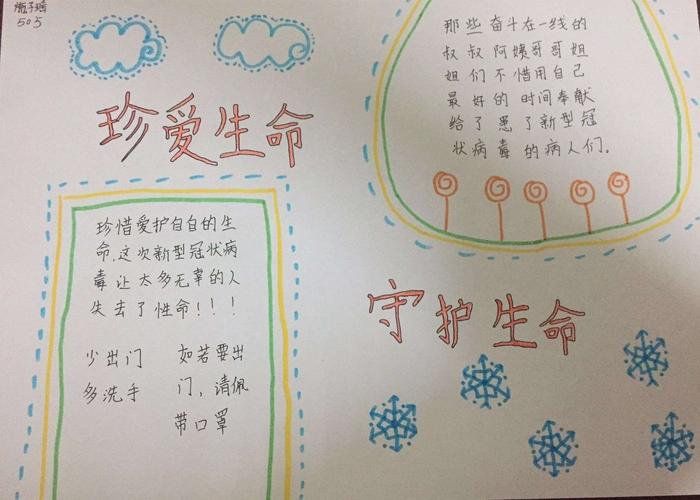 505
珍爱生命
珍惜爱护自自的生
命，这次新型冠状病
毒让太多无辜的人
失去了性命！！！
少出门
多洗手
如若要出
门，请佩
带口罩
那些奋斗在一线的
叔叔阿姨哥哥姐
姐们不惜用自己
最好的时间奉献
给了患了新型冠
状病毒的病人们．
守护生命